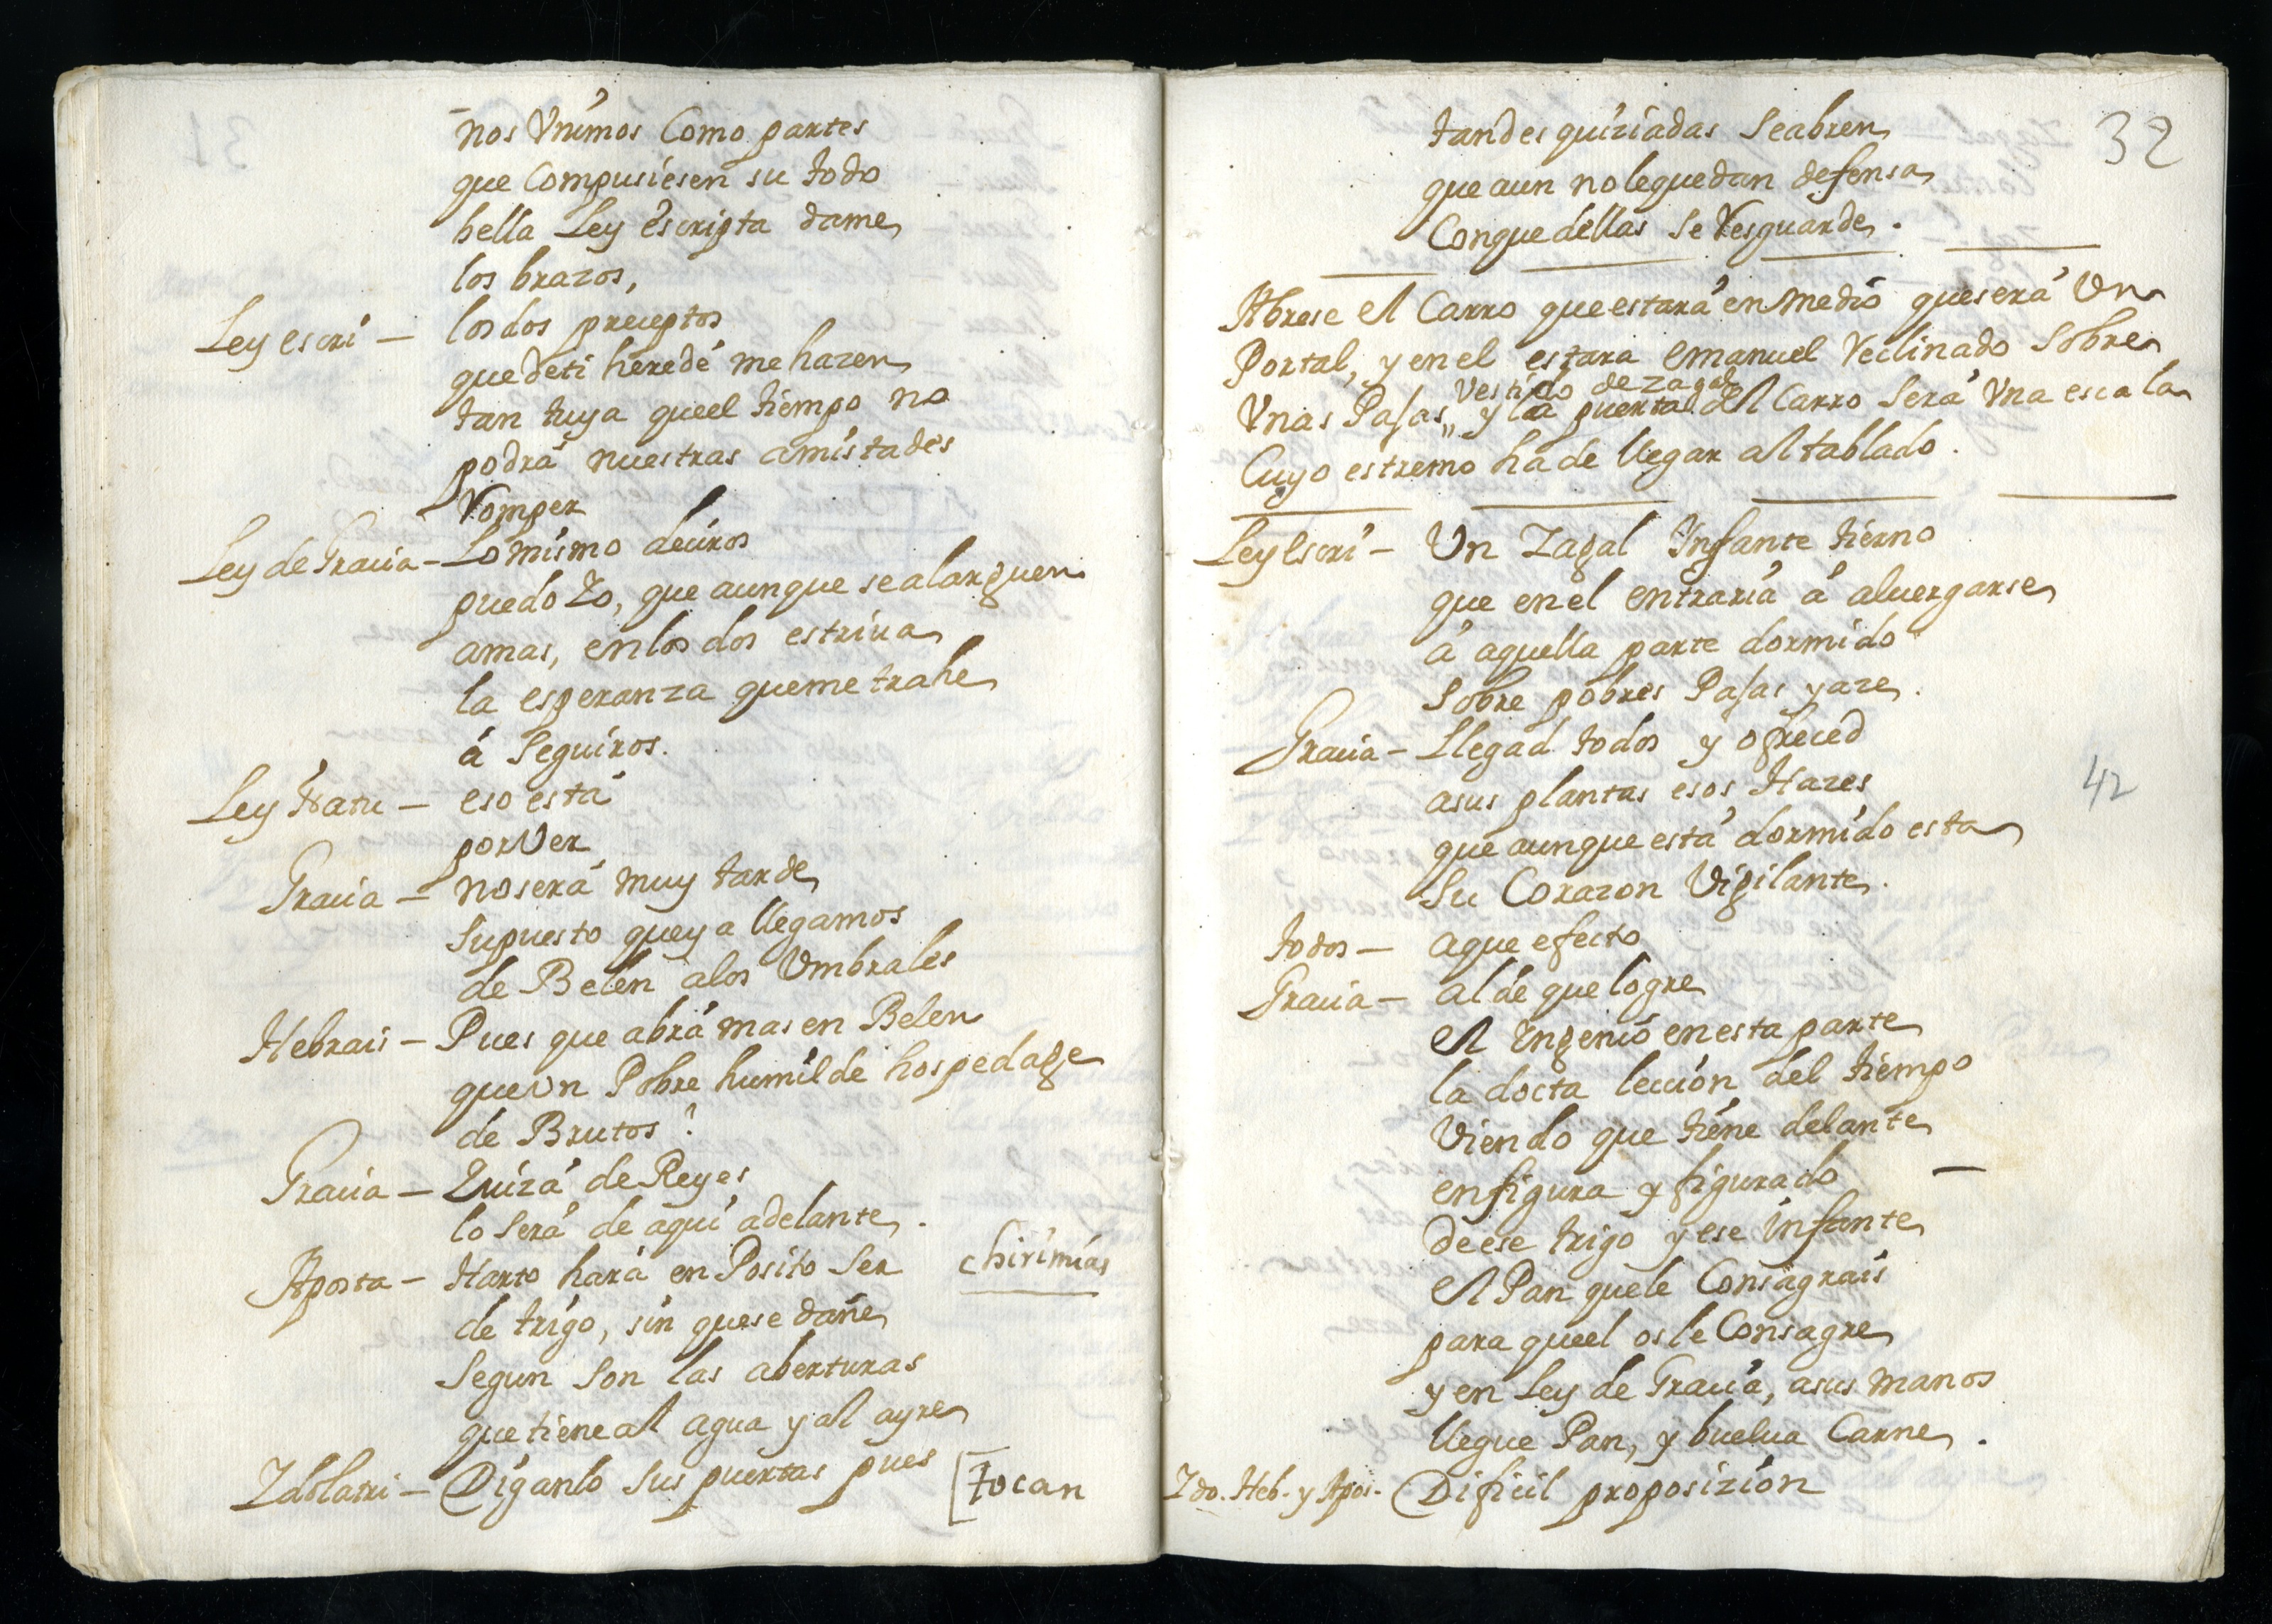 nos Vnimos Como partes
que Compusiesen su todo
bella Ley escripta dame
los brazos,
Ley escri — los dos preceptos
que deti heredé me hazen
tan tuya queel tiempo no
podrá nuestras amistades
Romper
Ley de Gracia — Lo mismo deciros
puedo Yo, que aunque se alarguen
amas, enlos dos estriua
la esperanza queme trahe
á Seguiros.
Ley Natu — eso está
por Ver
Gracia — no será muy tarde
Supuesto que ya llegamos
de Belen alos Vmbrales
Hebrais — Pues que abrá mas en Belen
que Vn Pobre humilde hospedage
de Brutos?
Gracia — Quizá de Reyes
lo Será de aqui adelante.
Aposta — Harto hará en Posito Ser chirimias
de trigo, sin quese dañe
Segun Son las aberturas
que tiene al agua y al ayre
Idolatri — Diganlo sus puertas pues [tocan
32
tan desquiziadas Seabren
que aun no le quedan defensa
Conque dellas se Resguarde.
Abrese el Carro que estará en medio que será Vn
Portal, y en el estara emanuel Reclinado Sobre
Vestido de zagal
Vnas Pajas,, y la puerta del Carro Será Vna escala
Cuyo estremo ha de llegar al tablado.
Ley Escri — Vn Zagal Infante tierno
que en el entraria á aluergarse
á aquella parte dormido
Sobre pobres Pajas yaze.
Gracia — Llegad todos y ofreced
asus plantas esos Hazes
42
que aunque está dormido esta
Su Corazon Vigilante.
todos — aque efecto
Gracia — al de que logre
el Ingenio en esta parte
la docta leccion del tiempo
Viendo que tiene delante
en figura y figurado —
de ese trigo y ese infante
el Pan que le Consagrais
para queel os le Consagre
y en Ley de Gracia, asus manos
llegue Pan, y buelua Carne.
Ido. Heb. y Apos. — Dificil proposizion